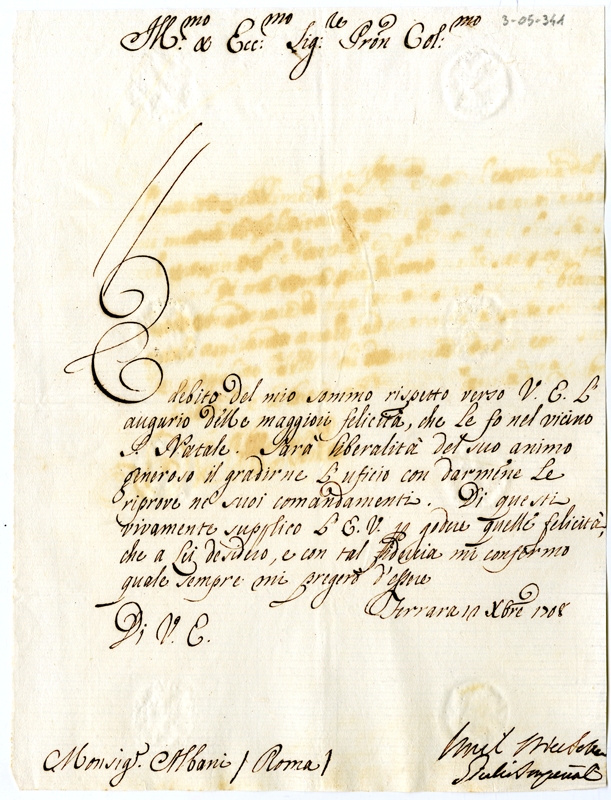 3-05-341
Ill.mo & Ecc.mo Sig.re Pron Col.mo
E debito del mio sommo rispetto verso V. E. l'
augurio delle maggiori felicità, che Le fo nel vicino
S. Natale. Sarà liberalità del suo animo
generoso il gradirne l'uficio con darmene le
riprove ne suoi comandamenti. Di questi
vivamente supplico l'E.V. a godere quelle felicità,
che a Lei desidero, e con tal fiducia mi confermo
quale sempre mi pregerò d'essere
Ferrara 12 Xbre 1708
Di V. E.
Monsig.r Albani / Roma /
Umil